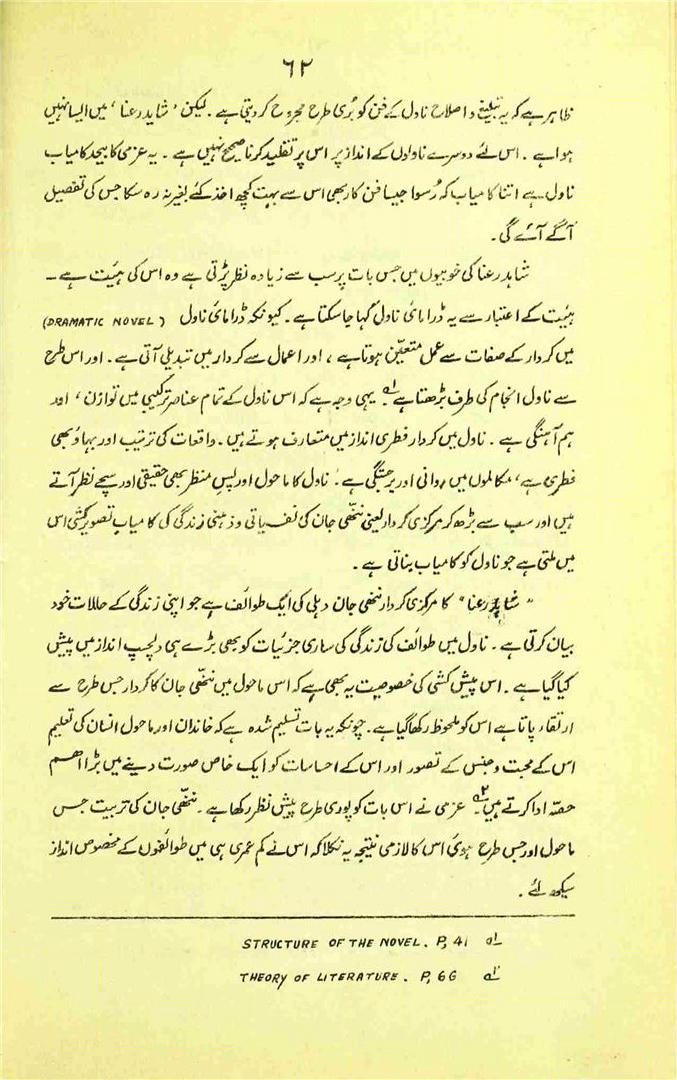 ٦٢
ظاہر ہے کہ یہ تبلیغ و اصلاح ناول کے فن کو بُری طرح مجروح کر دیتی ہے ۔ لیکن ’شاہد رعنا‘ میں ایسا نہیں
ہوا ہے ۔ اس لئے دوسرے ناولوں کے انداز پر اس پر تنقید کرنا صحیح نہیں ہے ۔ یہ عزمی کا بیحد کامیاب
ناول ہے اتنا کامیاب کہ رُسوا جیسا فن کار بھی اس سے بہت کچھ اخذ کئے بغیر نہ رہ سکا جس کی تفصیل
آگے آئے گی ۔
شاہد رعنا کی خوبیوں میں جس بات پر سب سے زیادہ نظر پڑتی ہے وہ اس کی ہیئت ہے ۔
ہیئت کے اعتبار سے یہ ڈرامائی ناول کہا جا سکتا ہے ۔ کیونکہ ڈرامائی ناول (DRAMATIC NOVEL)
میں کردار کے صفات سے عمل متعیّن ہوتا ہے ، اور اعمال سے کردار میں تبدیلی آتی ہے ۔ اور اس طرح
سے ناول انجام کی طرف بڑھتا ہے ۱؎ ۔ یہی وجہ ہے کہ اس ناول کے تمام عناصر ترکیبی میں توازن ، اور
ہم آہنگی ہے ۔ ناول میں کردار فطری انداز میں متعارف ہوتے ہیں ۔ واقعات کی ترتیب اور بہاؤ بھی
فطری ہے ، مکالموں میں روانی اور برجستگی ہے ۔ ناول کا ماحول اور پس منظر بھی حقیقی اور سچے نظر آتے
ہیں اور سب سے بڑھ کر مرکزی کردار یعنی ننھی جان کی نفسیاتی و ذہنی زندگی کی کامیاب تصویر کشی اس
میں ملتی ہے جو ناول کو کامیاب بناتی ہے ۔
”شاہد رعنا“ کا مرکزی کردار ننھی جان دہلی کی ایک طوائف ہے جو اپنی زندگی کے حالات خود
بیان کرتی ہے ۔ ناول میں طوائف کی زندگی کی ساری جزئیات کو بھی بڑے ہی دلچسپ انداز میں پیش
کیا گیا ہے ۔ اس پیش کشی کی خصوصیت یہ بھی ہے کہ اس ماحول میں ننھّی جان کا کردار جس طرح سے
ارتقاء پاتا ہے اس کو ملحوظ رکھا گیا ہے ۔ چونکہ یہ بات تسلیم شدہ ہے کہ خاندان اور ماحول انسان کی تعلیم
اس کے محبت و جنس کے تصور اور اس کے احساسات کو ایک خاص صورت دینے میں بڑا اہم
حصّہ ادا کرتے ہیں ۲؎ ۔ عزمی نے اس بات کو پوری طرح پیش نظر رکھا ہے ۔ ننھّی جان کی تربیت جس
ماحول اور جس طرح ہوئی اس کا لازمی نتیجہ یہ نکلا کہ اس نے کم عمری ہی میں طوائفوں کے مخصوص انداز
سیکھ لئے ۔
۱؎ STRUCTURE OF THE NOVEL. P, 41
۲؎ THEORY OF LITERATURE. P, 66